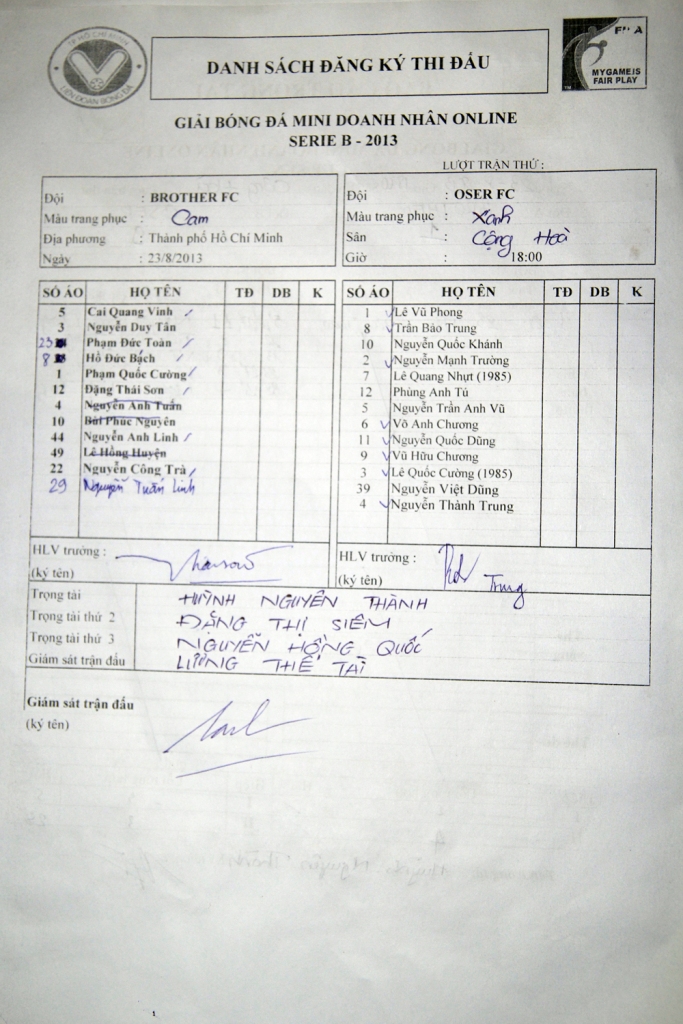 TP HỒ CHÍ MINH
LIÊN ĐOÀN BÓNG ĐÁ
DANH SÁCH ĐĂNG KÝ THI ĐẤU
MY GAME IS
FAIR PLAY
GIẢI BÓNG ĐÁ MINI DOANH NHÂN ONLINE
SERIE B - 2013
LƯỢT TRẬN THỨ :
Đội : BROTHER FC
Màu trang phục : Cam
Địa phương : Thành phố Hồ Chí Minh
Ngày : 23/8/2013
Đội : OSER FC
Màu trang phục : Xanh
Sân : Cộng Hoà
Giờ : 18:00
SỐ ÁO HỌ TÊN TĐ DB K
5 Cai Quang Vinh
3 Nguyễn Duy Tân
23 Phạm Đức Toàn
8 Hồ Đức Bách
1 Phạm Quốc Cường
12 Đặng Thái Sơn
4 Nguyễn Anh Tuấn
10 Bùi Phúc Nguyên
44 Nguyễn Anh Linh
49 Lê Hồng Huyện
22 Nguyễn Công Trà
29 Nguyễn Tuấn Linh
SỐ ÁO HỌ TÊN TĐ DB K
1 Lê Vũ Phong
8 Trần Bảo Trung
10 Nguyễn Quốc Khánh
2 Nguyễn Mạnh Trường
7 Lê Quang Nhựt (1985)
12 Phùng Anh Tú
5 Nguyễn Trần Anh Vũ
6 Võ Anh Chương
11 Nguyễn Quốc Dũng
9 Vũ Hữu Chương
3 Lê Quốc Cường (1985)
39 Nguyễn Việt Dũng
4 Nguyễn Thành Trung
HLV trưởng :
(ký tên)
HLV trưởng :
(ký tên) Trung
Trọng tài HUỲNH NGUYÊN THÀNH
Trọng tài thứ 2 ĐẶNG THỊ SIÊM
Trọng tài thứ 3 NGUYỄN HỒNG QUỐC
Giám sát trận đấu LƯƠNG THẾ TÀI
Giám sát trận đấu
(ký tên)